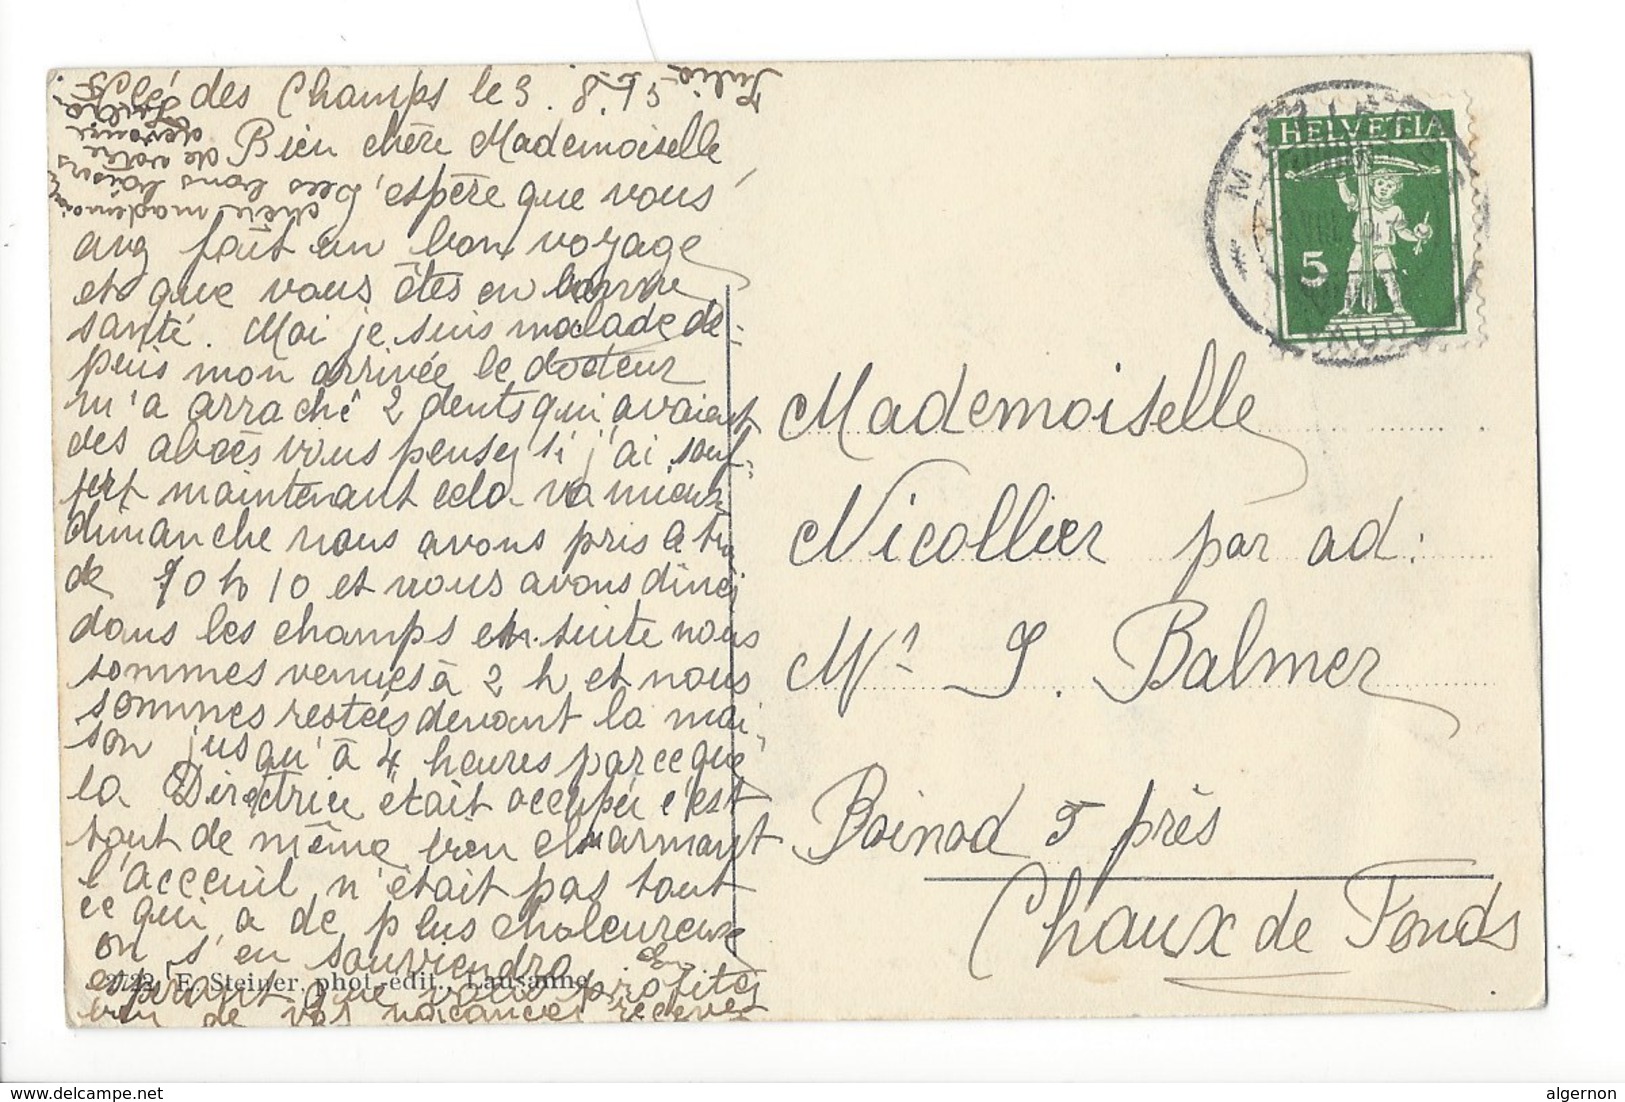 des Champs le 3. 8. 13
Bien chère Mademoiselle
J'espère que vous
avez fait un bon voyage
et que vous êtes en bonne
santé. Moi je suis malade de-
puis mon arrivée le docteur
m'a arraché 2 dents qui avaient
des abcès vous pensez si j'ai souf-
fert maintenant cela va mieux
dimanche nous avons pris le
de 10 h 10 et nous avons dîné
dans les champs ensuite nous
sommes venues à 2 h et nous
sommes restées devant la mai-
son jusqu'à 4 heures parceque
la Directrice etait occupée c'est
tout de même bien charmant
l'acceuil n'était pas tout
ce qui a de plus chaleureuse
on s'en souviendra En
espérant que vous profitez
bien de vos vacances recevez
chère mademoi
les bons baisers
de votre
Julia
2122 E. Steiner, phot.-édit., Lausanne
HELVETIA
5
Mademoiselle
Nicollier par ad:
Mr J. Balmer
Boinod 5 près
Chaux de Fonds
delcampe.net
algernon